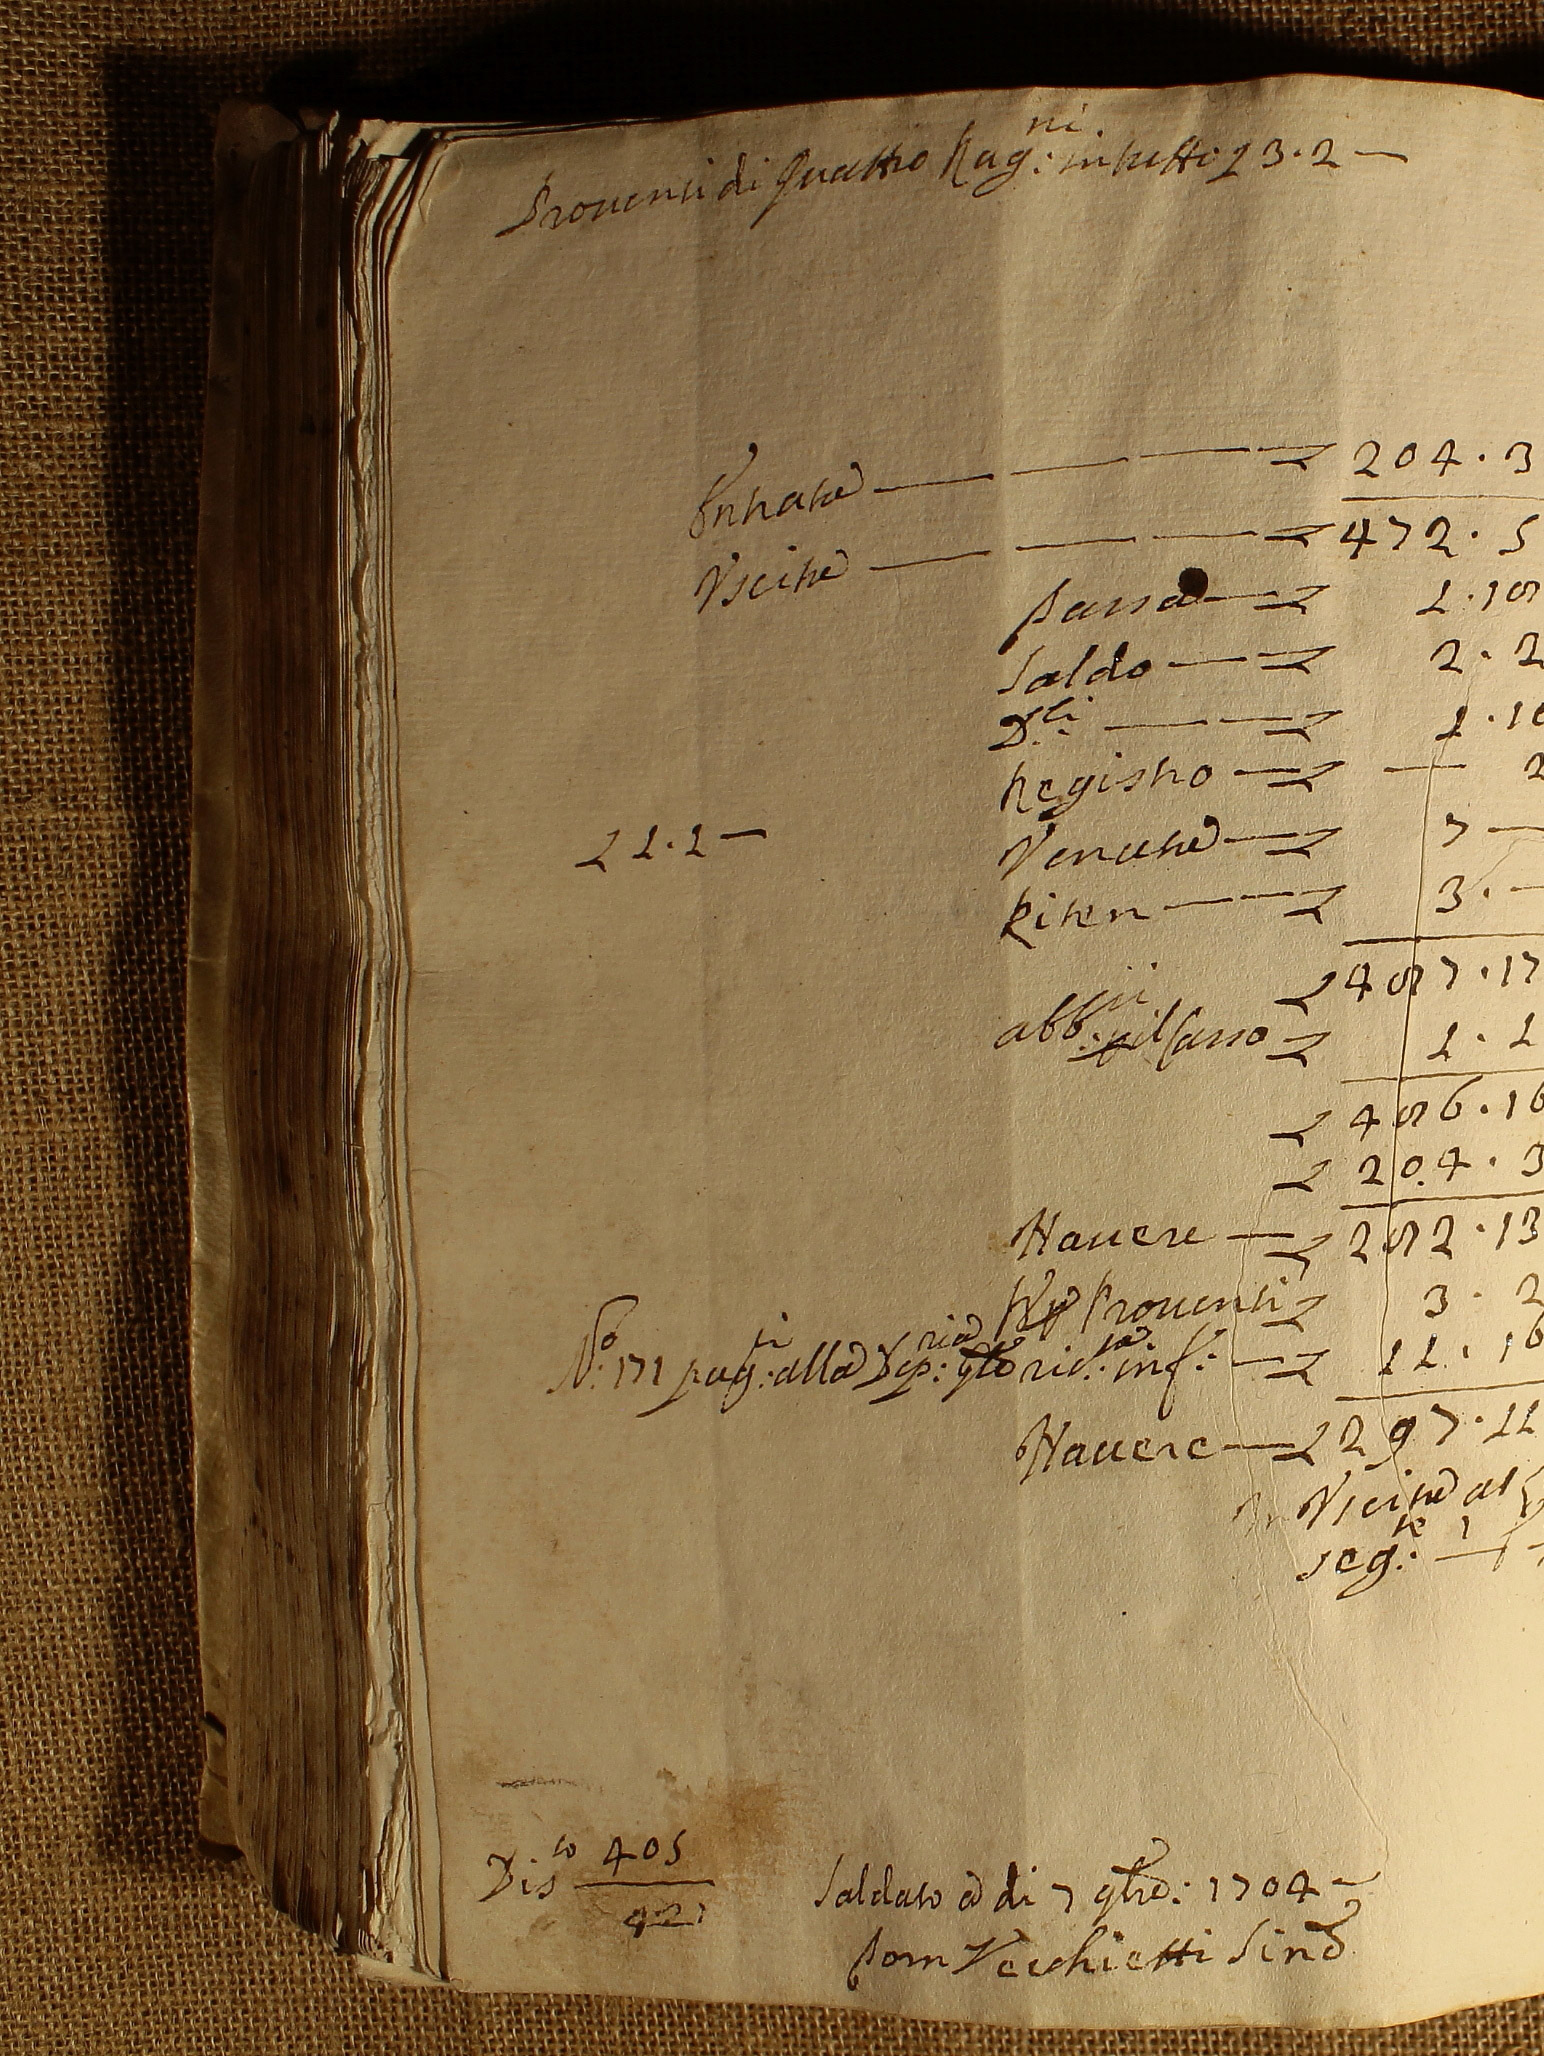 Prouenti di Quattro Rag:ni in tutto L 3.2 —
Entrate — — — L 204.3
Vscite — — — L 472.5
Passa — L 1.18
Saldo — L 2.2
D.ti — L 1.10
Registro — L — 2
L 1.1 — Venute — L 7 —
Riten — L 3.—
L 487.17
abb:ti p il Casso L 1.1
L 486.16
L 204.3
Hauere — L 282.13
Prouenti L 3.2
N.o 171 pag:ti alla Dep:ria gto rid:ta inf: — L 11.16
Hauere — L 297.11
Vscite al
seg:te
Dis.co 405
421
Saldato a di 7 gbre: 1704 —
Dom Vecchietti Sind